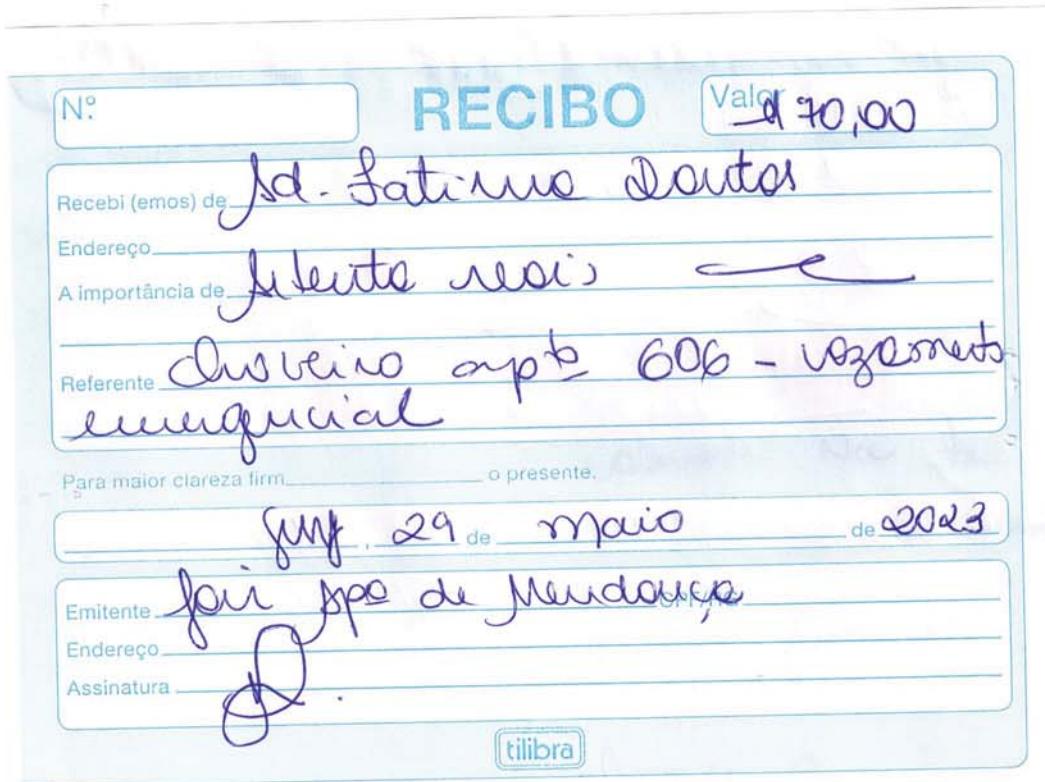 Nº
RECIBO
Valor 70,00
Recebi (emos) de Fatima Dantas
Endereço
A importância de Setenta reais
Referente Chuveiro aptº 606 - vazamento
emergencial
Para maior clareza firm o presente.
, 29 de maio de 2023
Emitente Jair Apº de Mendonça CPF/RG
Endereço
Assinatura
tilibra